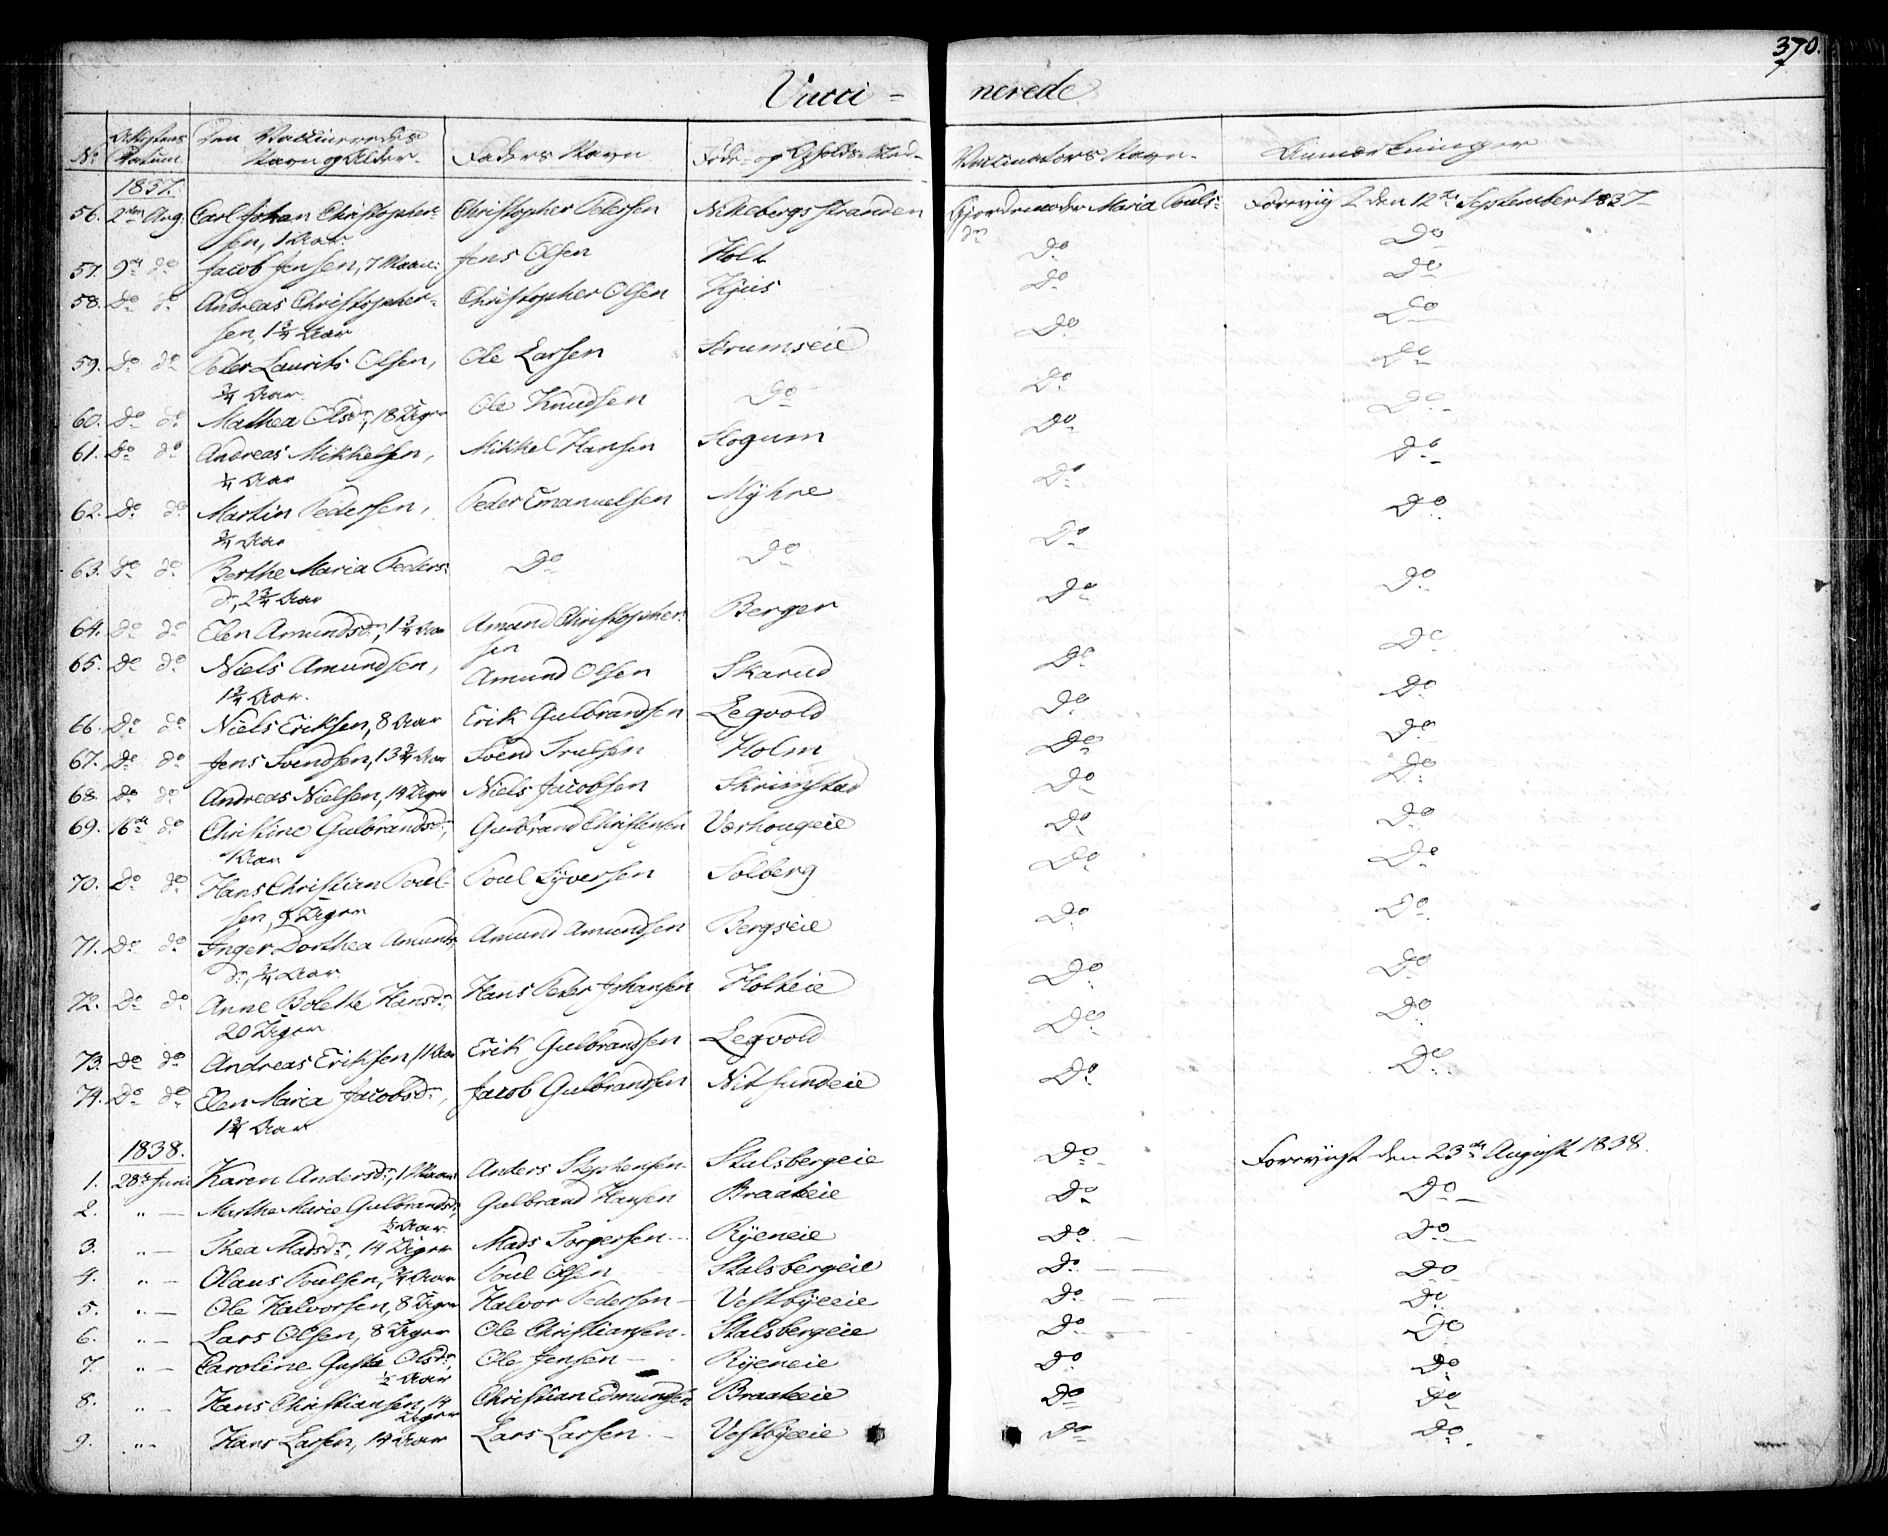 370.
Vacci - nerede
No. Attestens Datum. Den Vaccineredes Navn og Alder. Faders Navn Føde- og Opholds-Sted. Vaccinators Navn. Anmærkninger
1837.
56. 2den Aug. Carl Johan Christopher- Christopher Pedersen Nikebergs stranden Gjordemoder Maria Pouls- den 12te September 1837
sen, 1 Aar. dr Do
57. 9de do Jacob Jensen, 7 Maan: Jens Olsen Holt Do Do
58. Do do Andreas Christopher- Christopher Olsen Kjus Do Do
sen, 1 3/4 Aar
59. Do do Peder Laurits Olsen, Ole Larsen Krumseie Do Do
3/4 Aar.
60. Do do Mathea Olsdr, 18 Uger Ole Knudsen Do Do Do
61. Do do Andreas Mikkelsen, Mikkel Hansen Slogum Do Do
1/4 Aar
62. Do do Martin Pedersen, Peder Emanuelsen Myhre Do Do
3/4 Aar
63. Do do Berthe Maria Peders- Do Do Do Do
dr, 2 3/4 Aar
64. Do do Elen Amundsdr, 1 3/4 Aar Amund Christopher- Berger Do Do
sen
65. Do do Niels Amundsen, Amund Olsen Skarud Do Do
1 3/4 Aar.
66. Do do Niels Eriksen, 8 Aar Erik Gulbrandsen Legvold Do Do
67. Do do Jens Svendsen, 13 3/4 Aar Svend Trulsen Holm Do Do
68. Do do Andreas Nielsen, 14 Uger Niels Jacobsen Skrimstad Do Do
69. 16de do Christine Gulbrandsdr, Gulbrand Christensen Værhougeie Do Do
1 Aar
70. Do do Hans Christian Poul- Poul Syversen Solberg Do Do
sen, Uger
71. Do do Inger Dorthea Amunds- Amund Amundsen Bergseie Do Do
dr, 3/4 Aar
72. Do do Anne Bolette Hansdr, Hans Peder Johansen Holteie Do Do
20 Uger
73. Do do Andreas Eriksen, 11 Aar Erik Gulbrandsen Legvold Do Do
74. Do do Elen Maria Jacobsdr, Jacob Gulbrandsen Nitsundeie Do Do
1 3/4 Aar
1838.
1. 28de Juni Karen Andersdr, Anders Stephensen Stalsbergeie Do Forevist den 23de August 1838.
2. " — Marthe Marie Gulbrandsdr, Gulbrand Hansen Braateie Do Do
Aar
3. " — Thea Madsdr, 14 Uger Mads Torgersen Ryeneie Do Do
4. " — Olaus Poulsen, 3/4 Aar Poul Olsen Stalsbergeie Do Do
5. " — Ole Halvorsen, 8 Uger Halvor Pedersen Vestbyeeie Do Do
6. " — Lars Olsen, 8 Uger Ole Christiansen Stalsbergeie Do Do
7. " — Caroline Gusta Olsdr, Ole Jensen Ryeneie Do Do
1/2 Aar
8. " — Hans Christiansen, 14 Christian Edmundsen Braateie Do Do
Uger
9. " — Hans Larsen, 14 Aar Lars Larsen Vestbyeeie Do Do